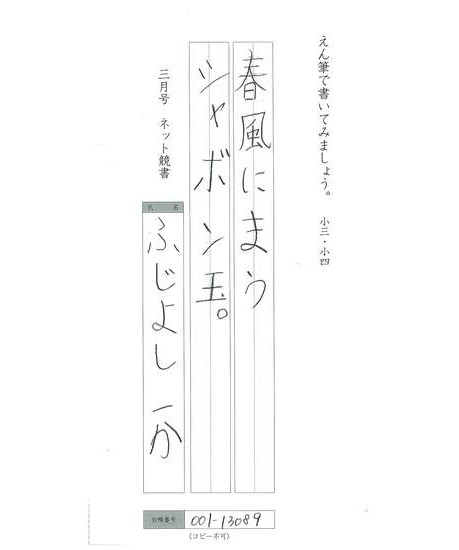 えん筆で書いてみましょう。 小三・小四
春風にまう
シャボン玉。
三月号 ネット競書
氏名
ふじよし一か
合格番号 001-13089
(コピー不可)